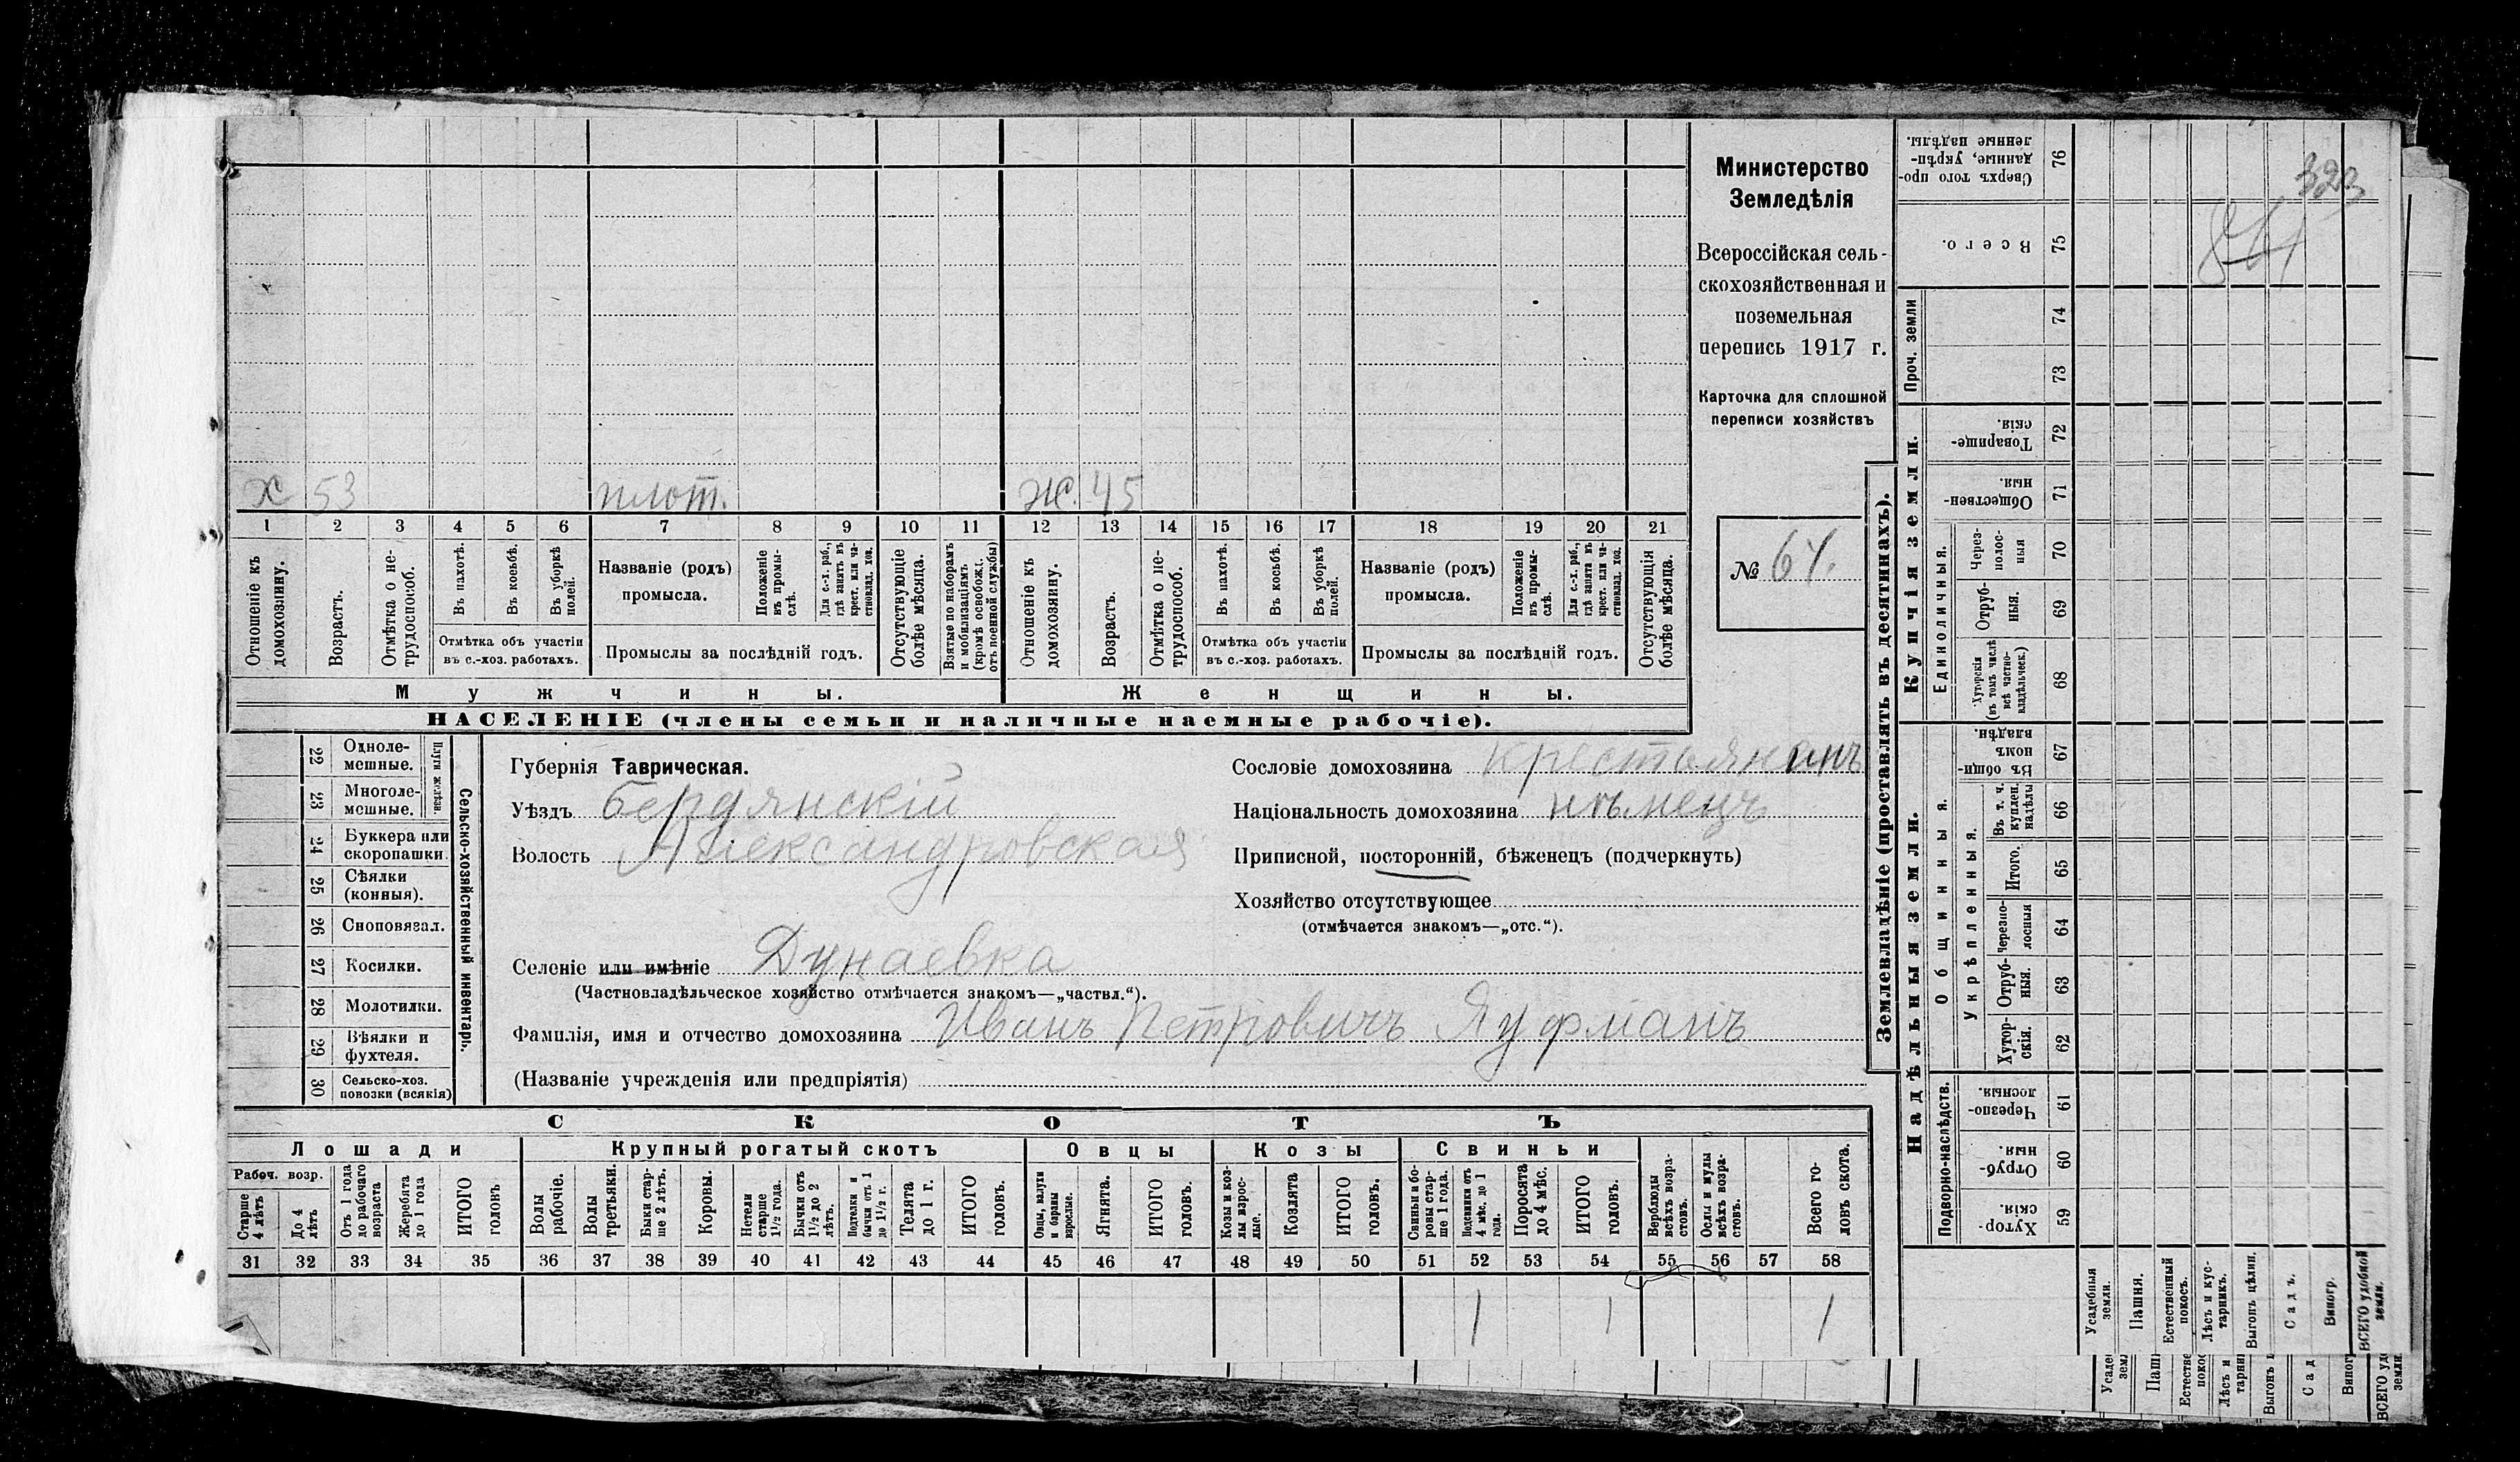 х 53 плот. ж. 45
1 2 3 4 5 6 7 8 9 10 11 12 13 14 15 16 17 18 19 20 21
Отношеніе къ домохозяину.
Возрастъ.
Отмѣтка о не-
трудоспособ.
Въ пахотѣ.
Въ косьбѣ.
Въ уборкѣ
полей.
Отмѣтка объ участіи
въ с.-хоз. работахъ.
Названіе (родъ)
промысла.
Положеніе
въ промы-
слѣ.
Для с.-х. раб.,
гдѣ занятъ въ
крест. или ча-
стновлад. хоз.
Промыслы за послѣдній годъ.
Отсутствующіе
болѣе мѣсяца.
Взятые по наборамъ
и мобилизаціямъ
(кромѣ освобожд.
отъ военной службы)
Отношеніе къ
домохозяину.
Возрастъ.
Отмѣтка о не-
трудоспособ.
Въ пахотѣ.
Въ косьбѣ.
Въ уборкѣ
полей.
Отмѣтка объ участіи
въ с.-хоз. работахъ.
Названіе (родъ)
промысла.
Положеніе
въ промы-
слѣ.
Для с.-х. раб.,
гдѣ занята въ
крест. или ча-
стновлад. хоз.
Промыслы за послѣдній годъ.
Отсутствующія
болѣе мѣсяца.
Мужчины.
Женщины.
НАСЕЛЕНІЕ (члены семьи и наличные наемные рабочіе).
Министерство
Земледѣлія
Всероссійская сель-
скохозяйственная и
поземельная
перепись 1917 г.
Карточка для сплошной
переписи хозяйствъ
№ 64.
22 Одноле-
мешные.
23 Многоле-
мешные.
Плуги желѣзн.
24 Буккера или
скоропашки.
25 Сѣялки
(конныя).
26 Сноповязал.
27 Косилки.
28 Молотилки.
29 Вѣялки и
фухтеля.
30 Сельско-хоз.
повозки (всякія)
Сельско-хозяйственный инвентарь.
Губернія Таврическая.
Уѣздъ Бердянскій
Волость Александровская
Селеніе или имѣніе Дунаевка
(Частновладѣльческое хозяйство отмѣчается знакомъ—„частвл.“).
Фамилія, имя и отчество домохозяина Иванъ Петровичъ Яуфманъ
(Названіе учрежденія или предпріятія)
Сословіе домохозяина крестьянинъ
Національность домохозяина нѣмецъ
Приписной, посторонній, бѣженецъ (подчеркнуть)
Хозяйство отсутствующее
(отмѣчается знакомъ—„отс.“).
СКОТЪ
Лошади
Крупный рогатый скотъ
Овцы
Козы
Свиньи
Рабоч. возр.
Старше
4 лѣтъ
До 4
лѣтъ
Отъ 1 года
до рабочаго
возраста
Жеребята
до 1 года
ИТОГО
головъ
Волы
рабочіе.
Волы
третьяки.
Быки стар-
ше 2 лѣтъ.
Коровы.
Нетели
старше
1½ года.
Бычки отъ
1½ до 2
лѣтъ.
Подтелки и
бычки отъ 1
до 1½ г.
Телята
до 1 г.
ИТОГО
головъ.
Овцы, валухи
и бараны
взрослые.
Ягнята.
ИТОГО
головъ.
Козы и коз-
лы взрос-
лые.
Козлята
ИТОГО
головъ.
Свиньи и бо-
ровы стар-
ше 1 года.
Подсвинки отъ
4 мѣс. до 1
года.
Поросята
до 4 мѣс.
ИТОГО
головъ.
Верблюды
всѣхъ возра-
стовъ.
Ослы и мулы
всѣхъ возра-
стовъ.
Всего го-
ловъ скота.
31 32 33 34 35 36 37 38 39 40 41 42 43 44 45 46 47 48 49 50 51 52 53 54 55 56 57 58
1 1 1
Землевладѣніе (проставлять въ десятинахъ).
Сверхъ того про-
данные, укрѣп-
ленные надѣлы.
76
323
Всего.
75
Проч. земли
74
73
Купчія земли.
Товарище-
скія
72
Обществен-
ныя.
71
Единоличныя.
Через-
полос-
ныя
70
Отруб-
ныя.
69
Хуторскія
(въ томъ числѣ
всѣ частно-
владѣльческ.)
68
Надѣльныя земли.
Общинныя.
Въ общи-
номъ
владѣн.
67
Укрѣпленныя.
Въ т. ч.
куплен.
надѣлы
66
Итого.
65
Черезпо-
лосныя
64
Отруб-
ныя.
63
Хутор-
скія.
62
Подворно-наслѣдств.
Черезпо-
лосныя.
61
Отруб-
ныя.
60
Хутор-
скія.
59
Усадебныя
земли.
Пашня.
Естественный
покосъ.
Лѣсъ и кус-
тарникъ.
Выгонъ цѣлин.
Садъ.
Виногр.
ВСЕГО удобной
земли.